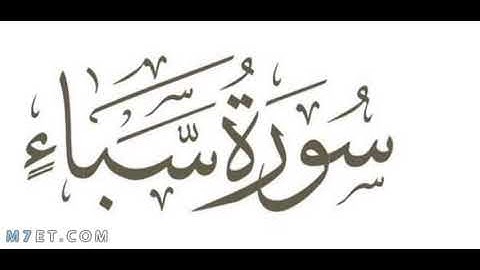 سُورَةُ سَّبَاءٍ
M7ET.COM